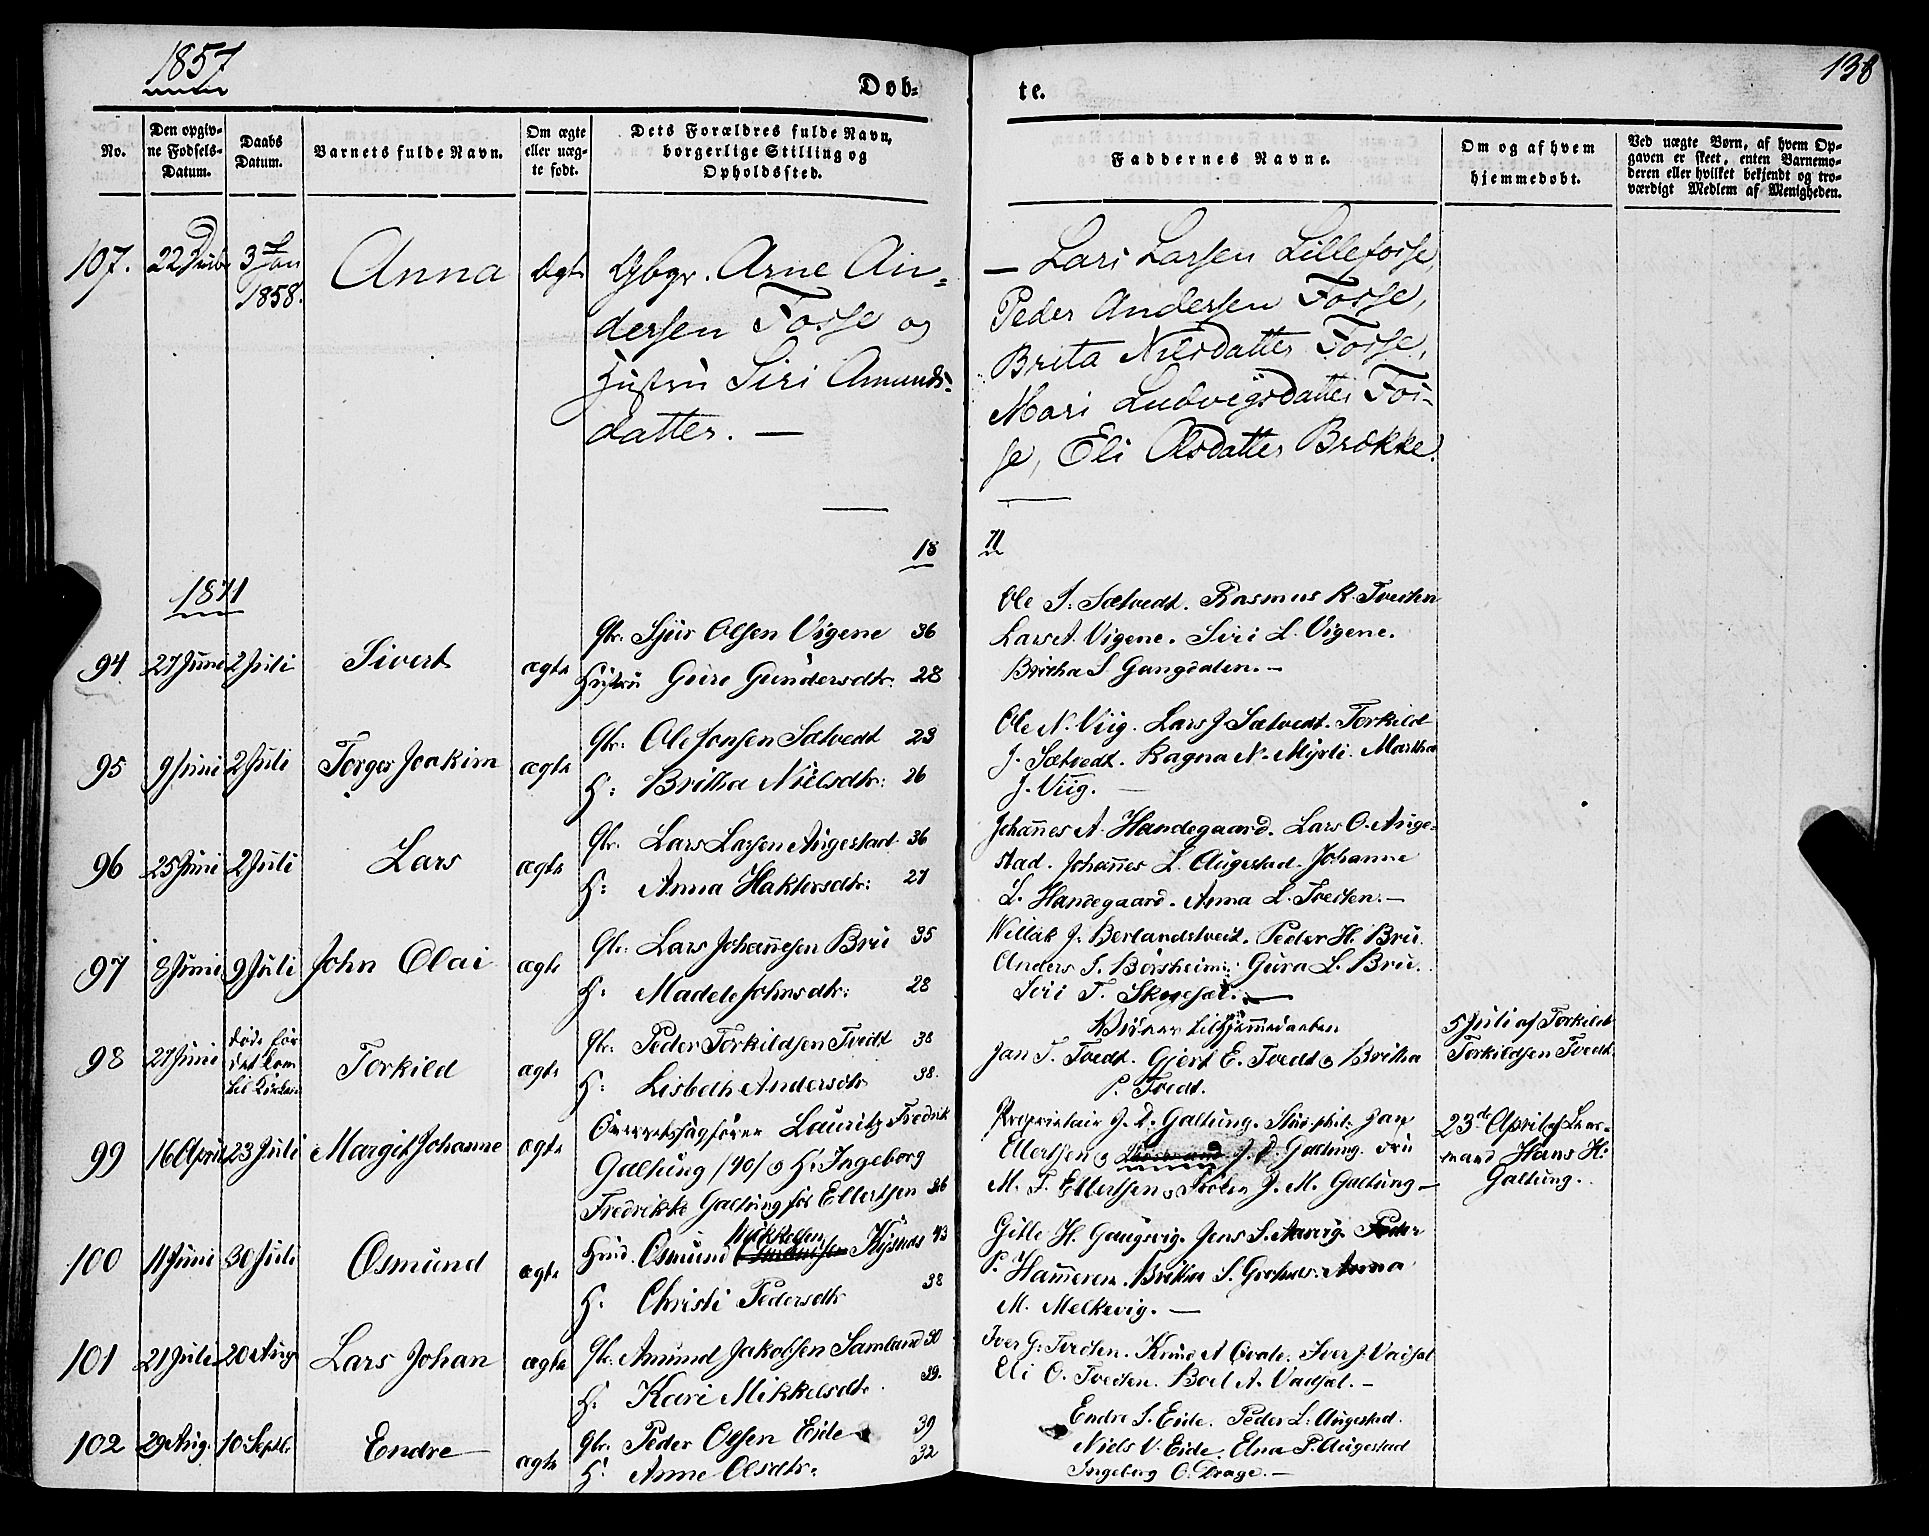 1857
138
Døb=
te.
No.
Den opgiv-
ne Fødsels-
Datum.
Daabs
Datum.
Barnets fulde Navn.
Om ægte
eller uæg-
te født.
Dets Forældres fulde Navn,
borgerlige Stilling og
Opholdssted.
Faddernes Navne.
Om og af hvem
hjemmedøbt.
Ved uægte Børn, af hvem Op-
gaven er skeet, enten Barnemo-
deren eller hvilket bekjendt og tro-
værdigt Medlem af Menigheden.
107. 22 Decb 3 Jan 1858. Anna ægte Gbgr. Arne An=
dersen Fosse og
Hustru Siri Amunds=
datter. —
— Lars Larsen Lillefosse,
Peder Andersen Fosse,
Brita Nilsdatter Fosse,
Mari Ludvigsdatter Fos-
se, Eli Olsdatter Brokke.
18 71
1871
94 27 Juni 2 Juli Sivert ægte Gbr. Sjur Olsen Vigene 36
Hustru Guro Gundersdtr. 28
Ole S. Sætvedt. Rasmus R. Tveiten
Lars A. Vigene. Siri L. Vigene.
Britha S Gangdalen. —
95 9 Juni 2 Juli Torger Joakim ægte Gbr: Ole Jonsen Sætvedt 23
H: Britha Nielsdtr: 26
Ole N. Viig. Lars J Sætvedt. Torkild
J. Sætvedt. Ragna N. Myrli. Martha
J. Viig. —
96 25 Juni 2 Juli Lars ægte Gbr. Lars Larsen Augestad 36
H: Anna Haktorsdtr: 27
Johannes A. Handegaard. Lars O. Auge-
stad. Johannes L. Augestad. Johanne
L. Handegaard. Anna L. Tveiten. —
97 8 Juni 9 Juli John Olai ægte Gbr: Lars Johannesen Bru 35
H. Madele Johnsdtr: 28
Willak J. Berlandstveit. Peder H. Bru.
Anders S. Børsheim. Gura L. Bru.
Siri T. —
98 27 Juni døde før
det kom
til Kirken Torkild ægte Gbr: Peder Torkildsen Tvedt 38
H: Lisbeth Andersdtr 38.
Vidner til Hjemmedaaben
Jan T. Tvedt. Gjert E. Tvedt & Britha
P. Tvedt.
5 Juli af Torkild
Torkildsen Tvedt.
99 16 April 23 Juli Margit Johanne ægte Overretssagfører Lauritz Fredrik
Galtung /40/ & H: Ingeborg
Fredrikke Galtung fød Ellertsen 26
Proprietair J. D. Galtung. Stud. phil. Jan
Ellertsen & J. D. Galtung. Fru
M. T. Ellertsen & Frøken J. M. Galtung —
23de April af Lens-
mand Hans H.
Galtung.
100 11 Juni 30 Juli Osmund ægte Husmd. Osmund 43
H. Christi Pedersdtr 38
Gitle H. Gaugsvig. Jens S. Aarvig. Peder
P. Hammeren. Britha S. Anna
M. Melkevig. —
101 21 Juli 20 Aug Lars Johan ægte Gbr. Amund Jakobsen Samland 30
H. Kari Mikkelsdtr. 39.
Iver G. Tveiten. Knud A Iver J. Vadsel
Eli O. Tveiten. Boel A. Vadsel. —
102 29 Aug. 10 Septbr Endre ægte Gbr. Peder Olsen Eide 39
H. Anne Olsdtr. 32
Endre S. Eide. Peder L. Augestad.
Niels V. Eide. Elna P. Augestad
Ingeborg O. Drage. —